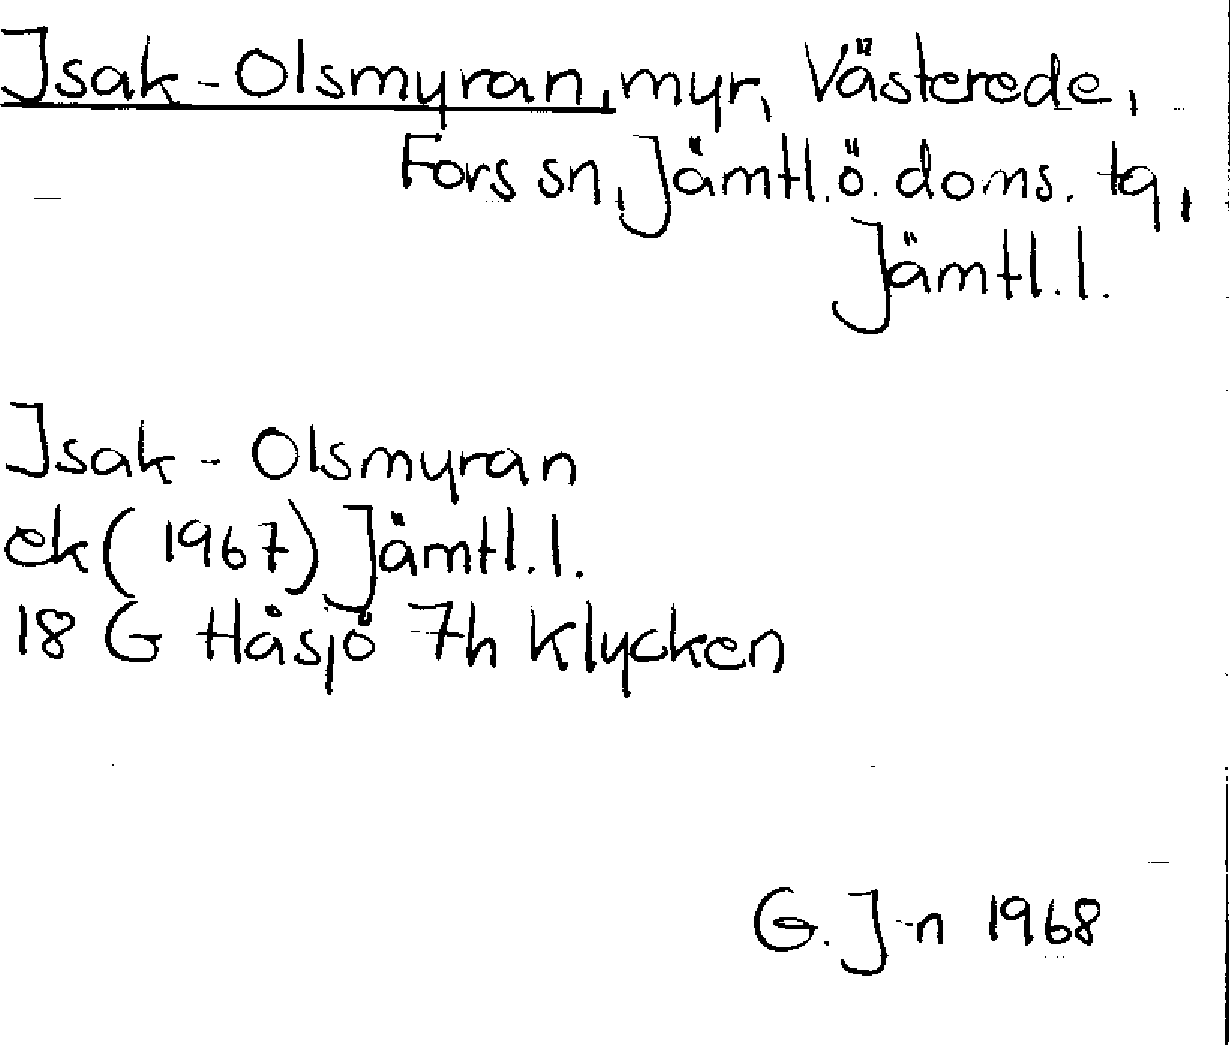 Isak-Olsmyran, myr, Västerede,
Fors sn, Jämtl.ö. doms. tg,
Jämtl.l.
Isak-Olsmyran
ek (1967) Jämtl.l.
18 G Håsjö 7h Klycken
G. J-n 1968